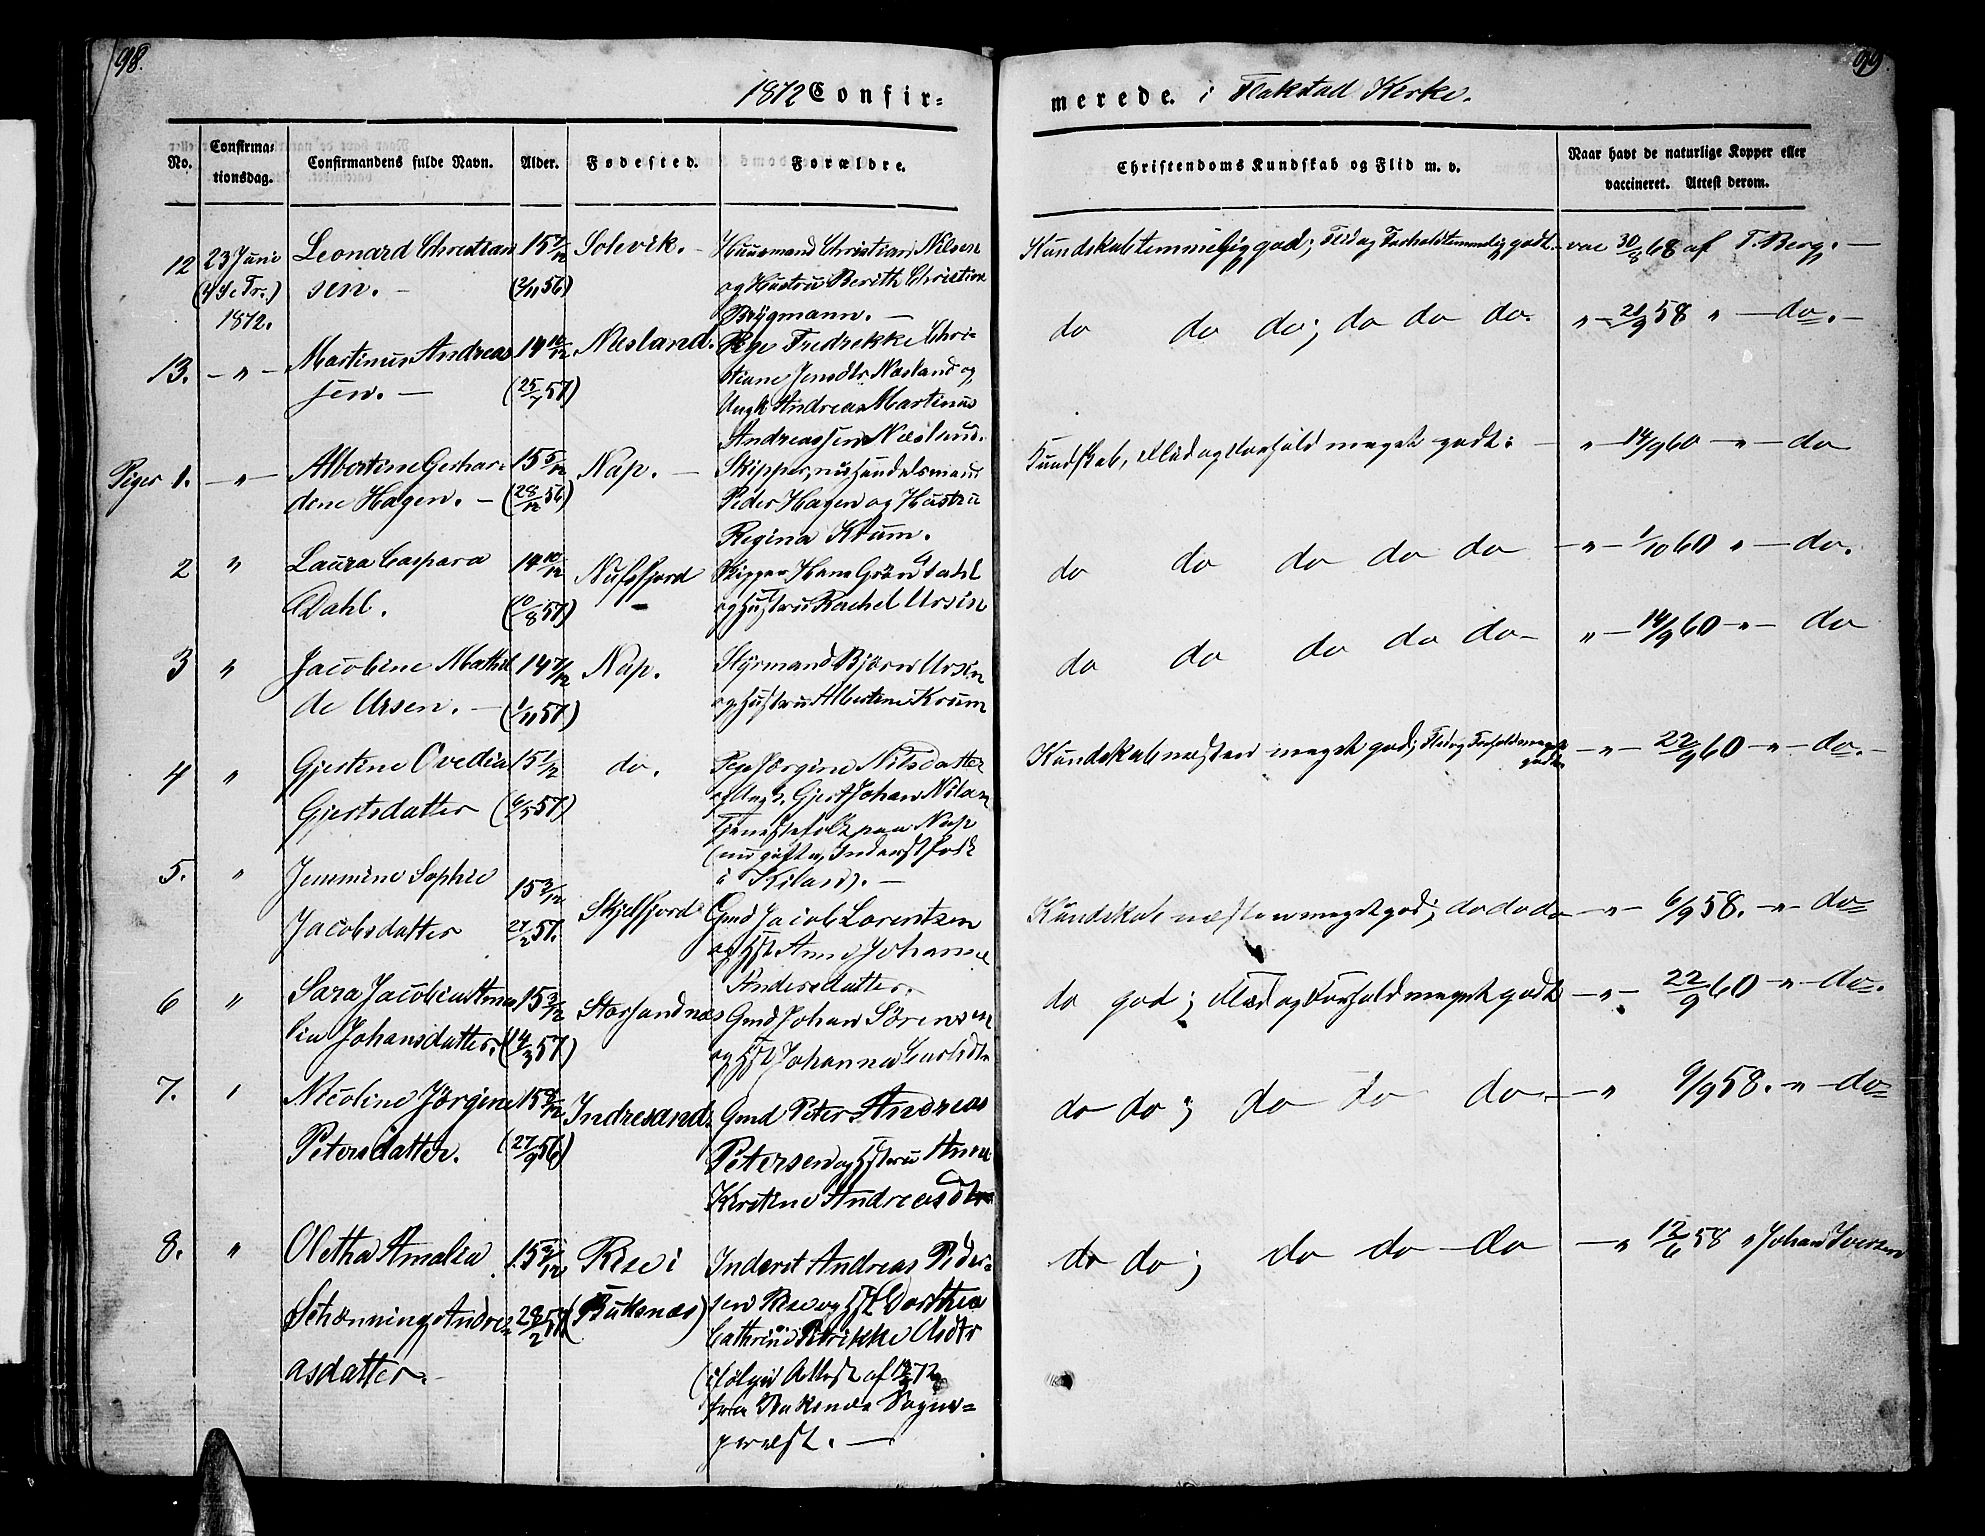 98.
99
1872 Confir-
merede. i Flakstad Kirke.
No.
Confirma-
tionsdag.
Confirmandens fulde Navn.
Alder.
Fødested.
Forældre.
Christendoms Kundskab og Flid m. v.
Naar havt de naturlige Kopper eller
vaccineret. Attest derom.
12 23 Juni Leonard Christian 15 7/12 Solevik. - Huusmand Christian Nilsen Kundskab temmelig god; Flid og Forhold temmelig godt. - vac 30/8 68 af T. Berg. -
(4 S e Tr.) sen. - (2/11 56) og Hustru Berith Christine
1872. Brygmann. -
13. - " - Martinus Andreas 14 10/12 Næsland. Pige Fredrikke Chri- do do do; do do do. " - 21/9 58 " - do. -
sen. - (25/7 57) stiane Jensdtr. Næsland og
Ungk Andreas Martinus
Andreassen Næsland.
Piger 1. - " - Albertine Gerhar- 15 5/12 Nap. - Skipper, nu Handelsmand Kundskab, Flid og Forhold meget godt: - " - 14/9 60 - " - do
dine Hagen. - (28/12 56) Peder Hagen og Hustru
Regina Krum.
2 " Laura Caspara 14 10/12 Nufsfjord Skipper Hans Grøn Dahl do do do do do - " - 1/10 60 " - do.
Dahl. (10/8 57) - og Hustru Rachel Ursin
3 " Jacobine Mathil 14 7/12 Nap. Styrmand Bjørn Ursin do do do do do - " - 14/9 60 - " - do
de Ursen. - (1/11 57) og Hustru Albertine Krum
4 " Gjertine Ovedia 15 1/12 do. Pige Jørgine Nilsdatter Kundskab næsten meget god; Flid og Forhold meget godt. - " - 22/9 60 - " - do. -
Gjertsdatter (6/5 57) og Ungk. Gjert Johan Nilsen
Tjenestefolk paa Nap
(nu gifte, Inderstfolk
i Kilan). -
5. " Jemmine Sophie 15 3/12 Skjelfjord Gmd Jacob Lorentzen Kundskab næsten meget god; do do do - " - 6/9 58. - " - do
Jacobsdatter 27/2 57. og Hst Anne Johanna
Andersdatter.
6 " Sara Jacobina Ama 15 3/12 Storsandnæs Gmd Johan Sørensen do god; Flid og Forhold meget godt - " - 22/9 60 - " - do.
lia Johansdatter. (14/3 57) og Hst Johanna Carlsdtr
7. " Nicoline Jørgine 15 8/12 Indresand. Gmd Peter Andreas do do; do do do. - " 9/9 58. - " - do
Petersdatter. (27/9 56) Petersen og Hstru Anna
Kirstine Andreasdtr
8. " Oletha Amalia 15 3/12 Rise i Inderst Andreas Peder- do do; do do do - " 12/6 58 " Johan Iversen
Schønning Andre- 28/2 57 (Buksnæs) sen Rise og Hst Dorthea
asdatter. Cathrine Petrikke Asdtr
(ifølge Attest af 72
fra Buksnæs Sogne-
præst. -